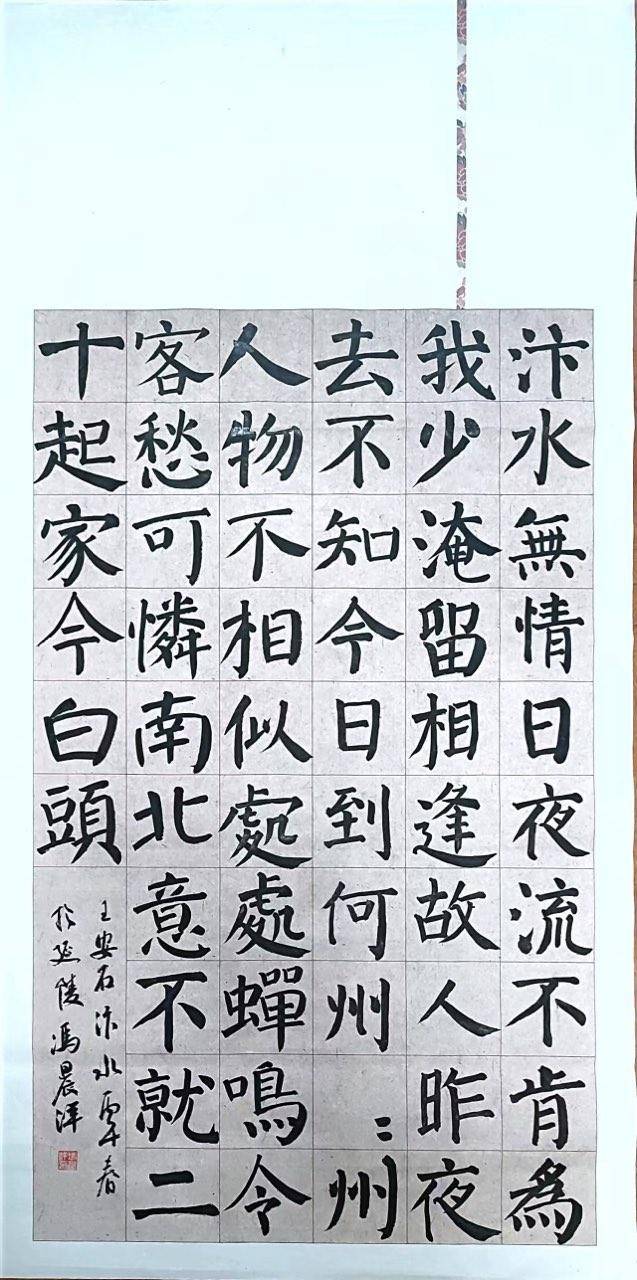 汴水無情日夜流不肯爲
我少淹留相逢故人昨夜
去不知今日到何州〻州
人物不相似處處蟬鳴令
客愁可憐南北意不就二
十起家今白頭
王安石汴水甲午春
於延陵馮晨洋